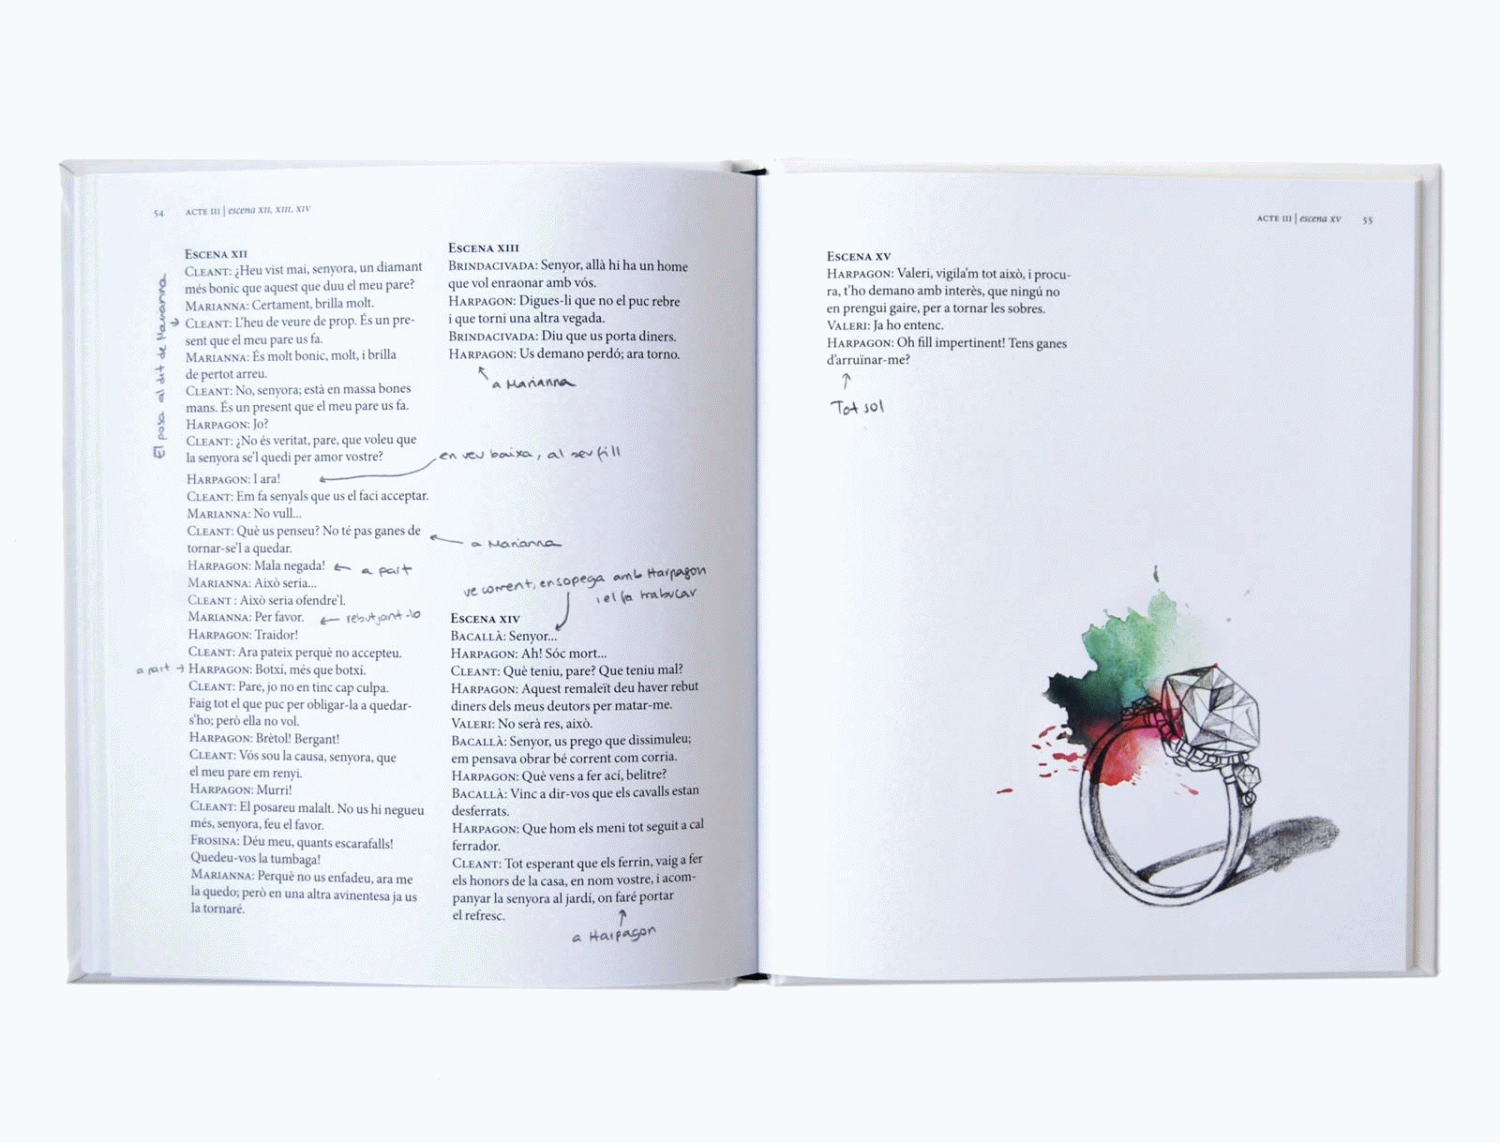 54 ACTE III | escena XII, XIII, XIV
ESCENA XII
CLEANT: ¿Heu vist mai, senyora, un diamant
més bonic que aquest que duu el meu pare?
MARIANNA: Certament, brilla molt.
CLEANT: L'heu de veure de prop. És un pre-
sent que el meu pare us fa.
MARIANNA: És molt bonic, molt, i brilla
de pertot arreu.
CLEANT: No, senyora; està en massa bones
mans. És un present que el meu pare us fa.
HARPAGON: Jo?
CLEANT: ¿No és veritat, pare, que voleu que
la senyora se'l quedi per amor vostre?
HARPAGON: I ara!
CLEANT: Em fa senyals que us el faci acceptar.
MARIANNA: No vull...
CLEANT: Què us penseu? No té pas ganes de
tornar-se'l a quedar.
HARPAGON: Mala negada!
MARIANNA: Això seria...
CLEANT : Això seria ofendre'l.
MARIANNA: Per favor.
HARPAGON: Traidor!
CLEANT: Ara pateix perquè no accepteu.
HARPAGON: Botxí, més que botxí.
CLEANT: Pare, jo no en tinc cap culpa.
Faig tot el que puc per obligar-la a quedar-
s'ho; però ella no vol.
HARPAGON: Brètol! Bergant!
CLEANT: Vós sou la causa, senyora, que
el meu pare em renyi.
HARPAGON: Murri!
CLEANT: El posareu malalt. No us hi negueu
més, senyora, feu el favor.
FROSINA: Déu meu, quants escarafalls!
Quedeu-vos la tumbaga!
MARIANNA: Perquè no us enfadeu, ara me
la quedo; però en una altra avinentesa ja us
la tornaré.
El posa al dit de Marianna
en veu baixa, al seu fill
a Marianna
a part
rebutjant-lo
a part
ESCENA XIII
BRINDACIVADA: Senyor, allà hi ha un home
que vol enraonar amb vós.
HARPAGON: Digues-li que no el puc rebre
i que torni una altra vegada.
BRINDACIVADA: Diu que us porta diners.
HARPAGON: Us demano perdó; ara torno.
a Marianna
ve corrent, ensopega amb Harpagon
i el fa trabucar
ESCENA XIV
BACALLÀ: Senyor...
HARPAGON: Ah! Sóc mort...
CLEANT: Què teniu, pare? Que teniu mal?
HARPAGON: Aquest remaleït deu haver rebut
diners dels meus deutors per matar-me.
VALERI: No serà res, això.
BACALLÀ: Senyor, us prego que dissimuleu;
em pensava obrar bé corrent com corria.
HARPAGON: Què vens a fer ací, belitre?
BACALLÀ: Vinc a dir-vos que els cavalls estan
desferrats.
HARPAGON: Que hom els meni tot seguit a cal
ferrador.
CLEANT: Tot esperant que els ferrin, vaig a fer
els honors de la casa, en nom vostre, i acom-
panyar la senyora al jardí, on faré portar
el refresc.
a Harpagon
ACTE III | escena XV 55
ESCENA XV
HARPAGON: Valeri, vigila'm tot això, i procu-
ra, t'ho demano amb interès, que ningú no
en prengui gaire, per a tornar les sobres.
VALERI: Ja ho entenc.
HARPAGON: Oh fill impertinent! Tens ganes
d'arruïnar-me?
Tot sol